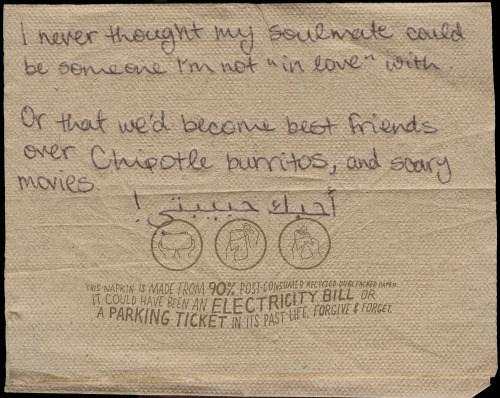 I never thought my soulmate could
be someone I'm not "in love" with.
Or that we'd become best friends
over Chipotle burritos, and scary
movies.
أحبك حبيبتي!
THIS NAPKIN IS MADE FROM 90% POST-CONSUMER RECYCLED UNBLEACHED PAPER.
IT COULD HAVE BEEN AN ELECTRICITY BILL OR
A PARKING TICKET IN ITS PAST LIFE. FORGIVE & FORGET.